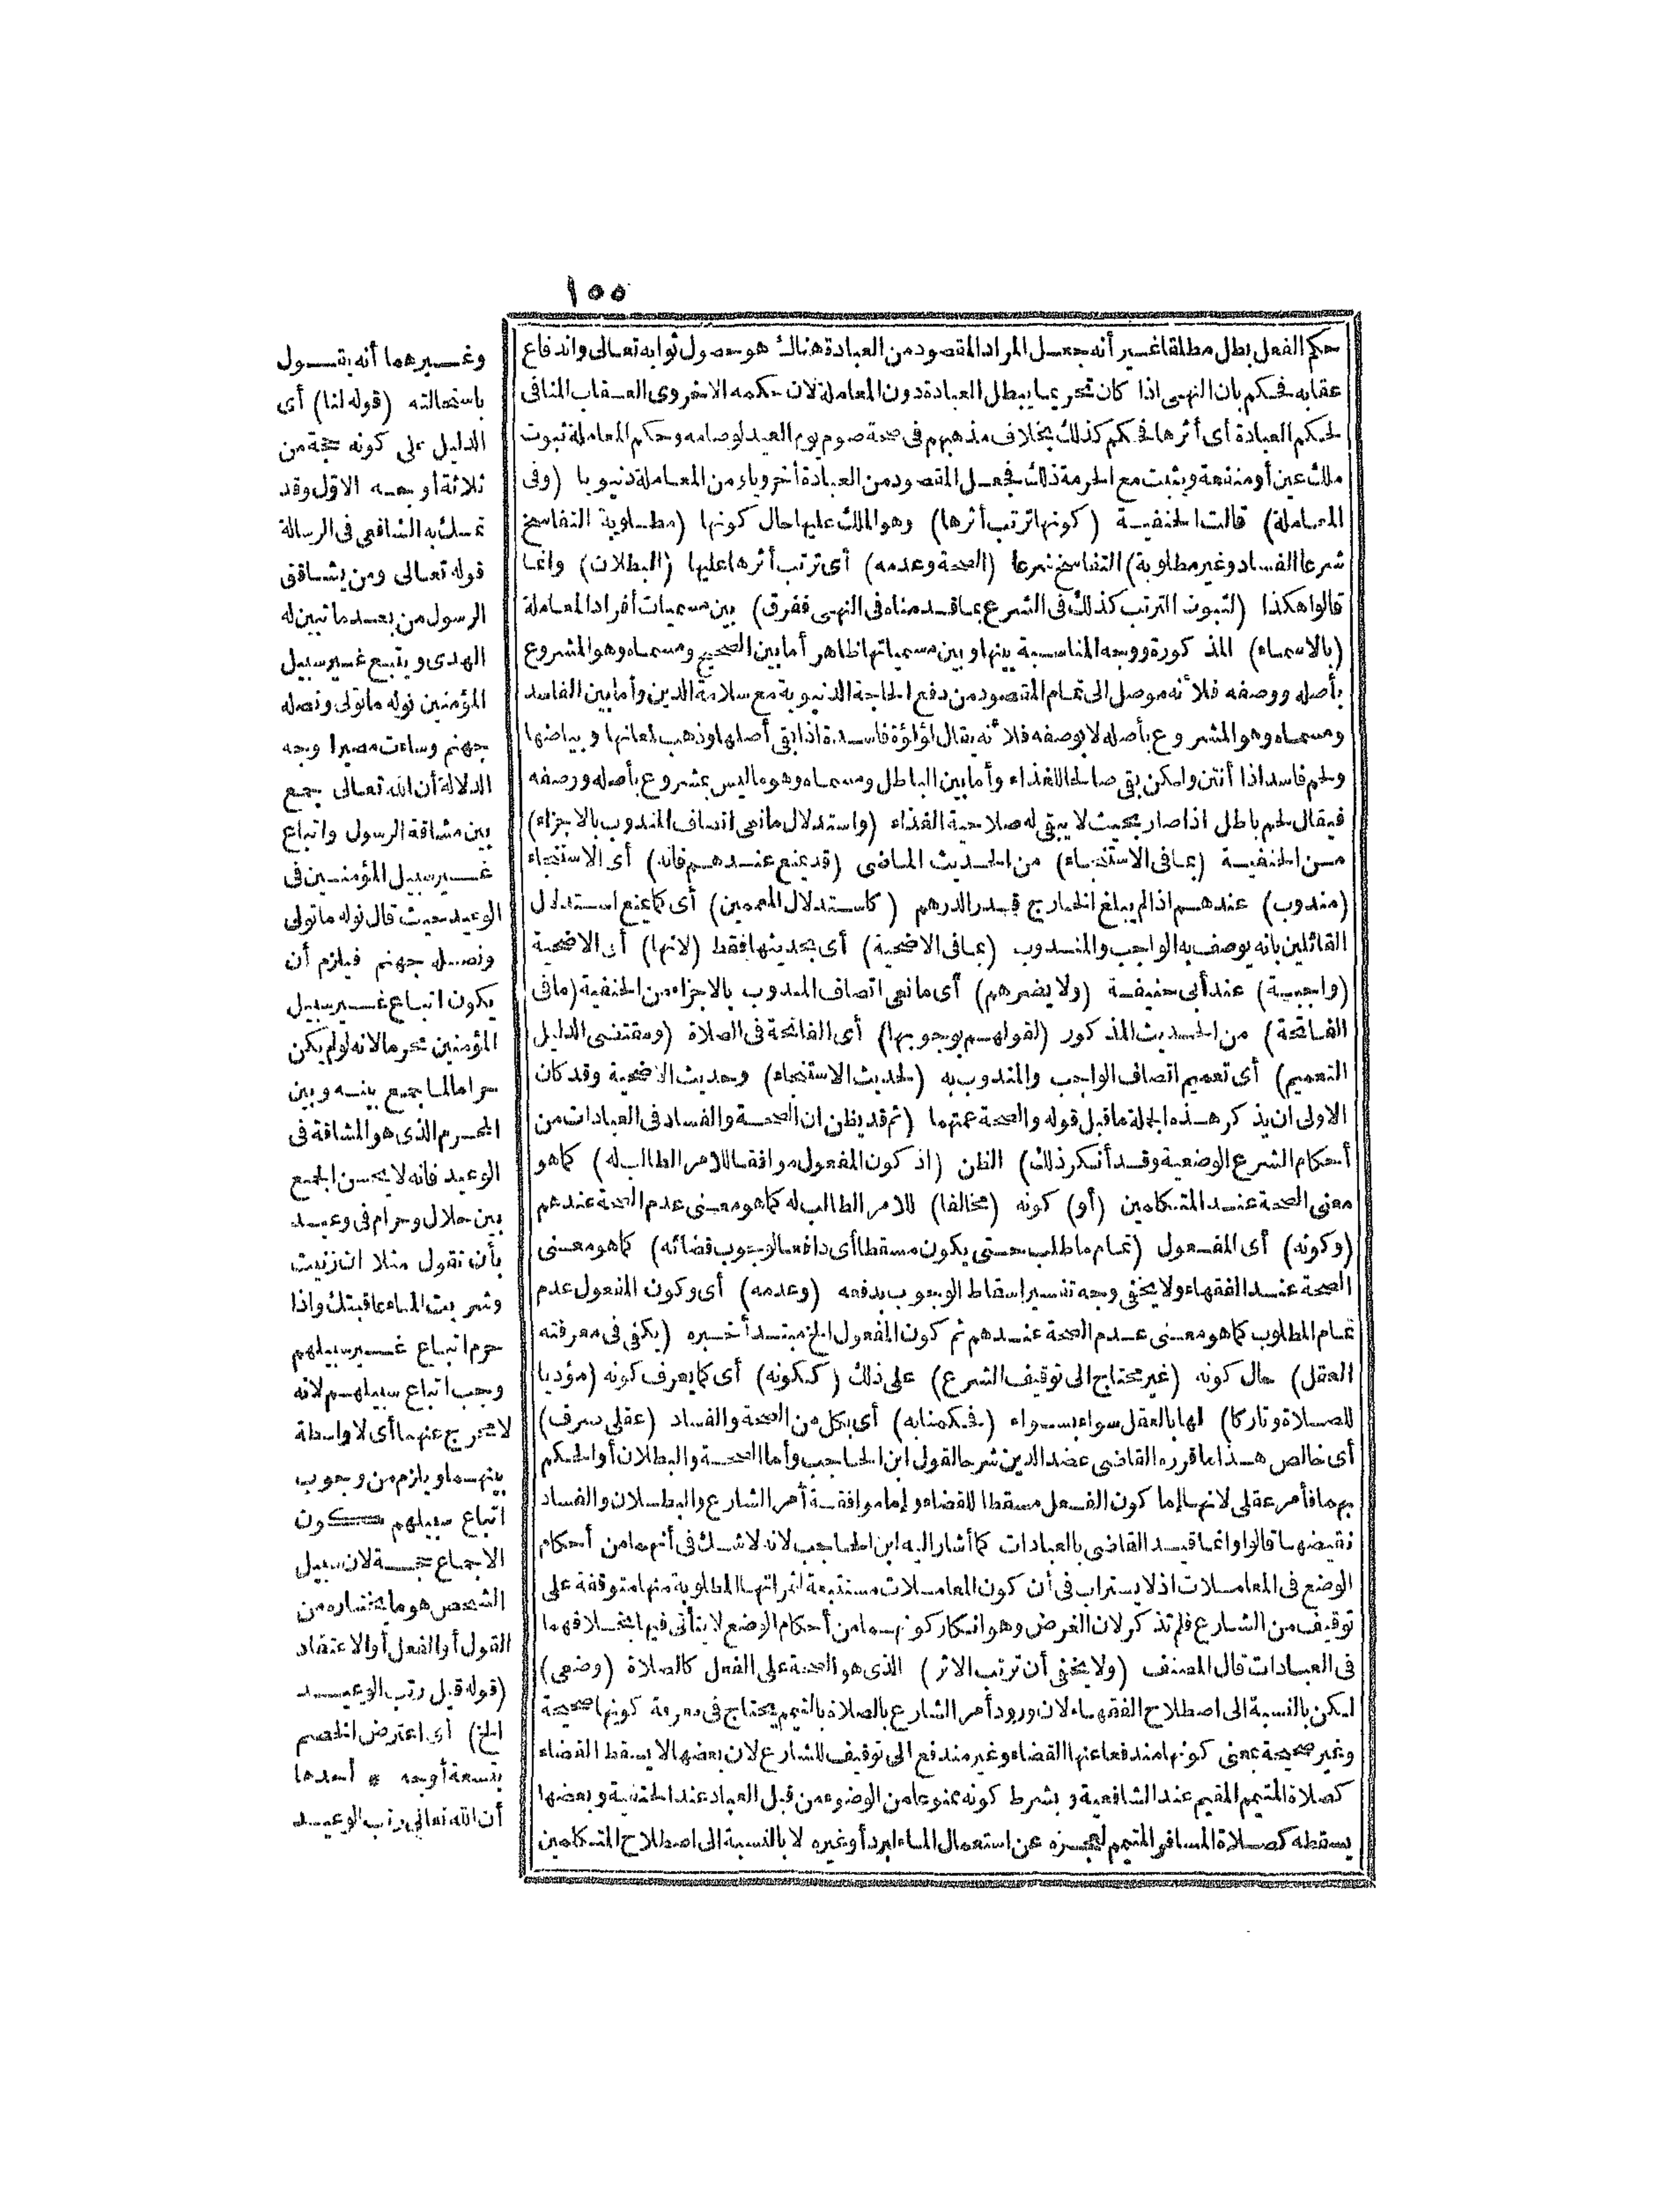 ١٥٥
حكم الفعل بطل مطلقا غير أنه جعل المراد المقصود من العبادة هناك هو حصول ثوابه تعالى واندفاع
عقابه فحكم بان النهى اذا كان تحريما يبطل العبادة دون المعاملة لان حكمه الاخروى العقاب المنافى
لحكم العبادة أى أثرها فحكم كذلك بخلاف مذهبهم فى صحة صوم يوم العيد لو صامه وحكم المعاملة ثبوت
ملك عين أو منفعة ويثبت مع الحرمة ذلك فجعل المقصود من العبادة أخرويا ومن المعاملة دنيويا (وفى
المعاملة) قالت الحنفية (كونها ترتب أثرها) وهو الملك عليها حال كونها (مطلوبة التفاسخ
شرعا الفساد وغير مطلوبة) التفاسخ شرعا (الصحة وعدمه) أى ترتب أثرها عليها (البطلان) وانما
قالوا هكذا (لثبوت الترتب كذلك فى الشرع بما قدمناه فى النهى ففرق) بين مسميات أفراد المعاملة
(بالاسماء) المذكورة ووجه المناسبة بينها وبين مسمياتها ظاهر أما بين الصحيح ومسماه وهو المشروع
بأصله ووصفه فلأنه موصل الى تمام المقصود من دفع الحاجة الدنيوية مع سلامة الدين وأما بين الفاسد
ومسماه وهو المشروع بأصله لا بوصفه فلأنه يقال لؤلؤة فاسدة اذا بقى أصلها وذهب لمعانها وبياضها
ولحم فاسد اذا أنتن ولكن بقى صالحا للغذاء وأما بين الباطل ومسماه وهو ما ليس بمشروع بأصله ووصفه
فيقال لحم باطل اذا صار بحيث لا يبقى له صلاحية الغذاء (واستدلال مانعى اتصاف المندوب بالاجزاء)
من الحنفية (بما فى الاستنجاء) من الحديث الماضى (قد يمنع عندهم فانه) أى الاستنجاء
(مندوب) عندهم اذا لم يبلغ الخارج قدر الدرهم (كاستدلال المعممين) أى كما يمنع استدلال
القائلين بانه يوصف به الواجب والمندوب (بما فى الاضحية) أى بحديثها فقط (لانها) أى الاضحية
(واجبة) عند أبى حنيفة (ولا يضرهم) أى مانعى اتصاف المندوب بالاجزاء من الحنفية (ما فى
الفاتحة) من الحديث المذكور (لقولهم بوجوبها) أى الفاتحة فى الصلاة (ومقتضى الدليل
التعميم) أى تعميم اتصاف الواجب والمندوب به (لحديث الاستنجاء) وحديث الاضحية وقد كان
الاولى ان يذكر هذه الجملة ما قبل قوله والصحة عمتهما (ثم قد يظن ان الصحة والفساد فى العبادات من
أحكام الشرع الوضعية وقد أنكر ذلك) الظن (اذ كون المفعول موافقا للامر الطالب له) كما هو
معنى الصحة عند المتكلمين (أو) كونه (مخالفا) للامر الطالب له كما هو معنى عدم الصحة عندهم
(وكونه) أى المفعول (تمام ما طلب حتى يكون مسقطا أى دافعا لوجوب قضائه) كما هو معنى
الصحة عند الفقهاء ولا يخفى وجه تفسير اسقاط الوجوب بدفعه (وعدمه) أى وكون المفعول عدم
تمام المطلوب كما هو معنى عدم الصحة عندهم ثم كون المفعول الخ مبتدأ خبره (يكفى فى معرفته
العقل) حال كونه (غير محتاج الى توقيف الشرع) على ذلك (ككونه) أى كما يعرف كونه (مؤديا
للصلاة وتاركا) لها بالعقل سواء بسواء (فحكمنا به) أى بكل من الصحة والفساد (عقلى صرف)
أى خالص هذا ما قرره القاضى عضد الدين شرحا لقول ابن الحاجب وأما الصحة والبطلان أو الحكم
بهما فأمر عقلى لانها إما كون الفعل مسقطا للقضاء وإما موافقة أمر الشارع والبطلان والفساد
نقيضهما قالوا وانما قيد القاضى بالعبادات كما أشار اليه ابن الحاجب لانه لا شك فى أنهما من أحكام
الوضع فى المعاملات اذ لا يستراب فى أن كون المعاملات مستتبعة لثمراتها المطلوبة منها متوقفة على
توقيف من الشارع فلم تذكر لان الغرض وهو انكار كونهما من أحكام الوضع لا يتأتى فيها بخلافهما
فى العبادات قال المصنف (ولا يخفى أن ترتب الاثر) الذى هو الصحة على الفعل كالصلاة (وضعى)
لكن بالنسبة الى اصطلاح الفقهاء لان ورود أمر الشارع بالصلاة بالتيمم يحتاج فى معرفة كونها صحيحة
وغير صحيحة بمعنى كونها مندفعا عنها القضاء وغير مندفع الى توقيف للشارع لان بعضها لا يسقط القضاء
كصلاة المتيمم المقيم عند الشافعية وبشرط كونه ممنوعا من الوضوء من قبل العباد عند الحنفية وبعضها
يسقطه كصلاة المسافر المتيمم لعجزه عن استعمال الماء لبرد أو غيره لا بالنسبة الى اصطلاح المتكلمين
وغيرهما أنه يقول
باستحالته (قوله لنا) أى
الدليل على كونه حجة من
ثلاثة أوجه الاول وقد
تمسك به الشافعى فى الرسالة
قوله تعالى ومن يشاقق
الرسول من بعد ما تبين له
الهدى ويتبع غير سبيل
المؤمنين نوله ما تولى ونصله
جهنم وساءت مصيرا وجه
الدلالة أن الله تعالى جمع
بين مشاقة الرسول واتباع
غير سبيل المؤمنين فى
الوعيد حيث قال نوله ما تولى
ونصله جهنم فيلزم أن
يكون اتباع غير سبيل
المؤمنين محرما لانه لو لم يكن
حراما لما جمع بينه وبين
المحرم الذى هو المشاقة فى
الوعيد فانه لا يحسن الجمع
بين حلال وحرام فى وعيد
بأن تقول مثلا ان زنيت
وشربت الماء عاقبتك واذا
حرم اتباع غير سبيلهم
وجب اتباع سبيلهم لانه
لا مخرج عنهما أى لا واسطة
بينهما ويلزم من وجوب
اتباع سبيلهم كون
الاجماع حجة لان سبيل
الشخص هو ما يختاره من
القول أو الفعل أو الاعتقاد
(قوله قيل رتب الوعيد
الخ) أى اعترض الخصم
بتسعة أوجه * أحدها
أن الله تعالى رتب الوعيد